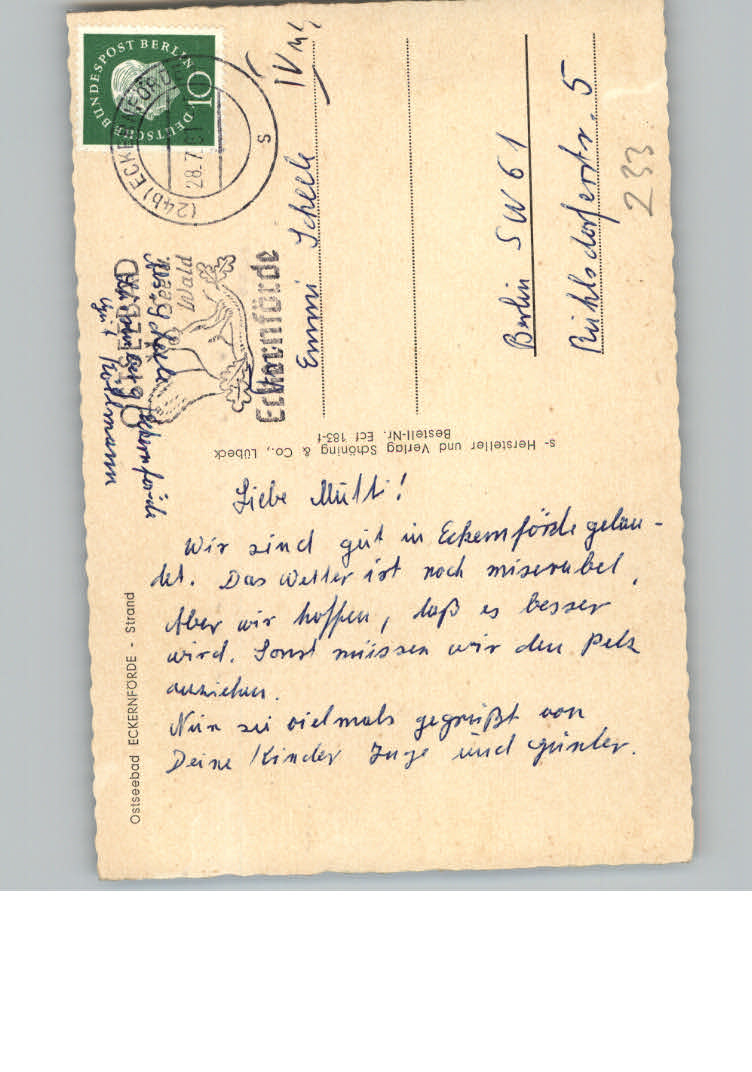 Ostseebad ECKERNFÖRDE - Strand
Liebe Mutti!
Wir sind gut in Eckernförde gelan-
det. Das Wetter ist noch miserabel,
Aber wir hoffen, daß es besser
wird. Sonst müssen wir den Pelz
anziehen.
Nun sei vielmals gegrüßt von
Deine Kinder Inge und Günter.
s- Hersteller und Verlag Schöning & Co., Lübeck
Bestell-Nr. Ecf 183-f
DEUTSCHE BUNDESPOST BERLIN
10
(24b) ECKERNFÖRDE
28.7.61
s
OSTSEEBAD
See
Wald
Eckernförde
Eckernförde
Emmi Scheele
Berlin SW 61
Ruhlsdorferstr. 5
233